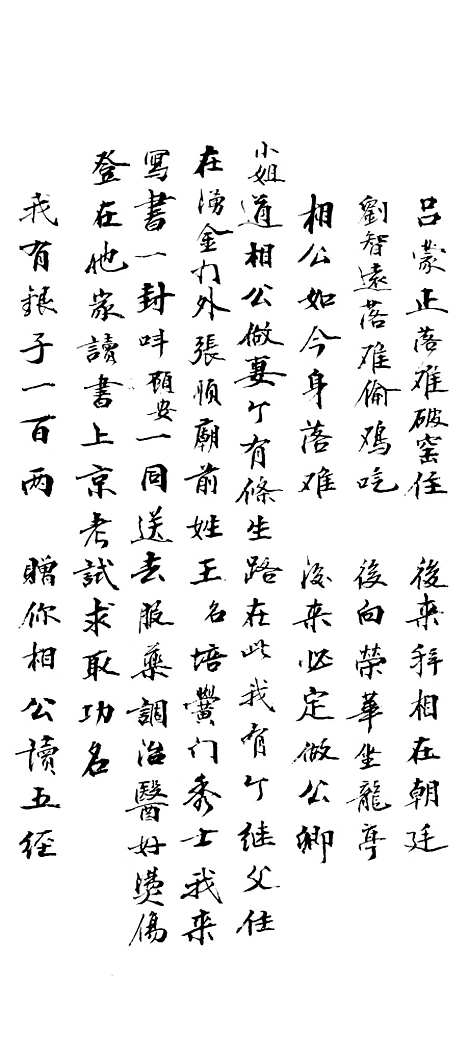 吕蒙正落难破窑住 後来拜相在朝廷
劉智遠落难偷鸡吃 後向榮華坐龍亭
相公如今身落难 後来必定做公卿
小姐道相公做妻个有條生路在此我有个继父住
在湧金门外張順廟前姓王名培黌门秀士我来
寫書一封呌顾安一同送去服藥調治醫好燙傷
登在他家讀書上京考試求取功名
我有銀子一百两 贈你相公讀五經